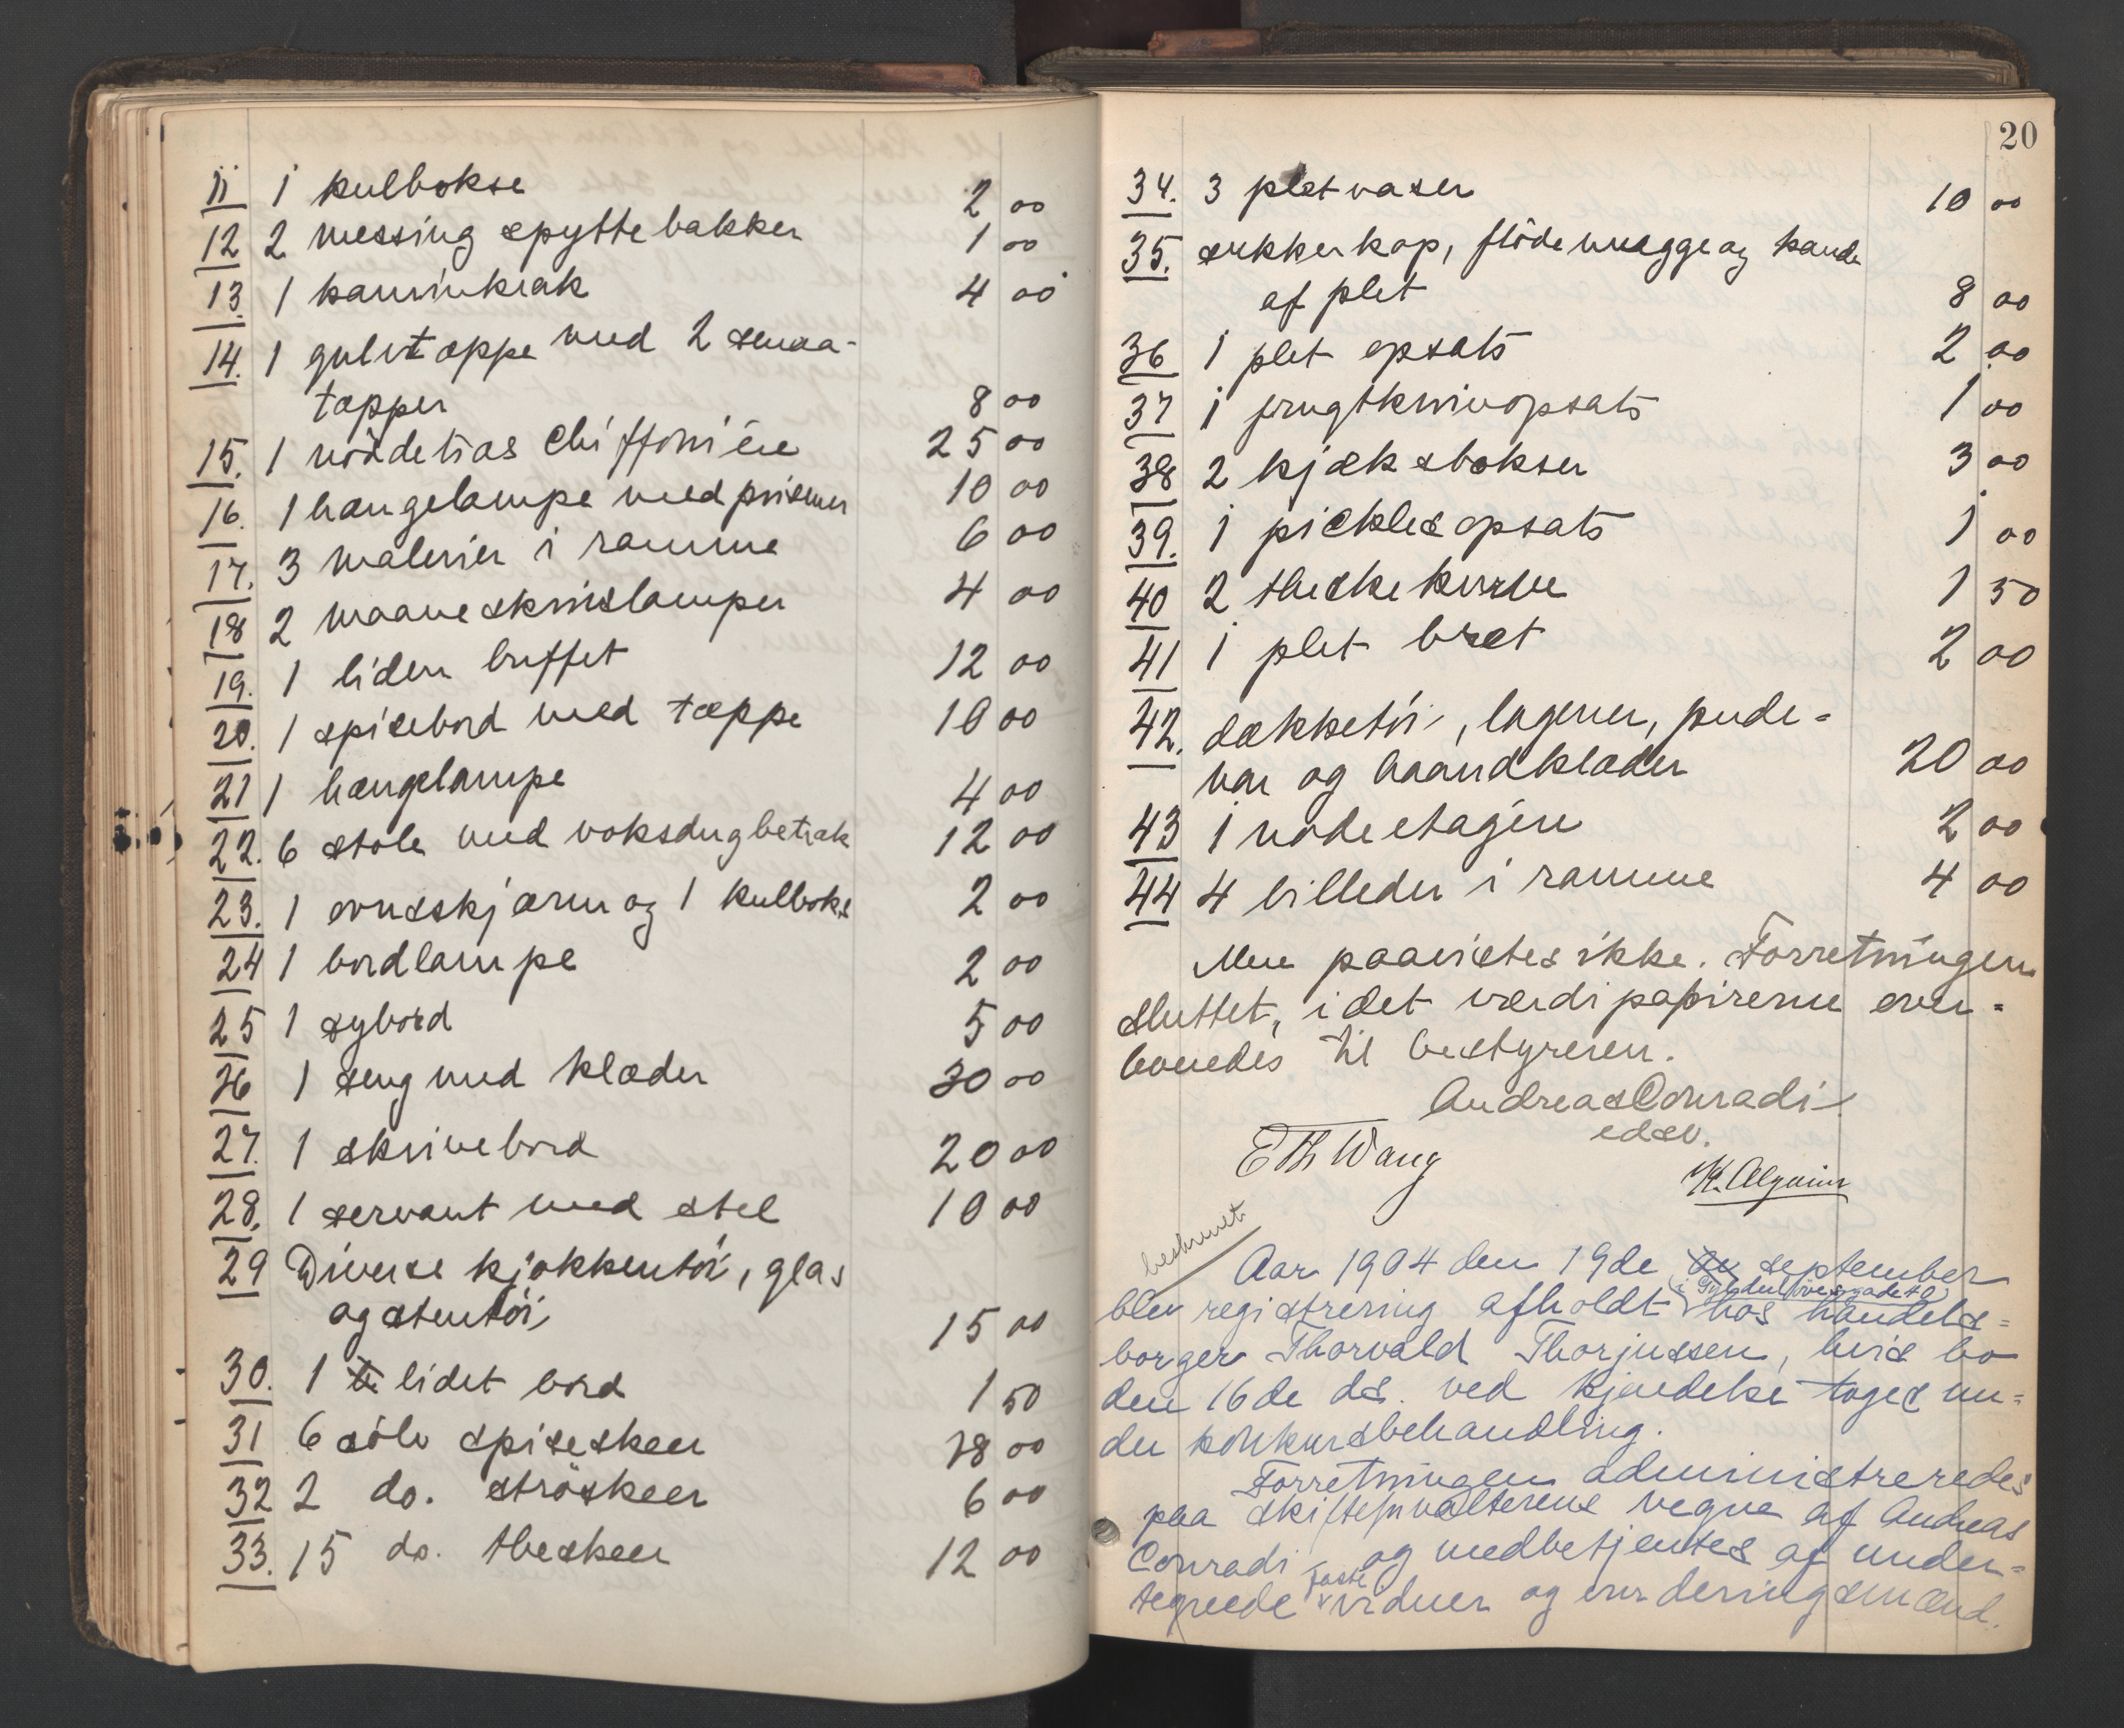 11 1 kulbokse 2 00
12 2 messing spyttebakker 1 00
13. 1 kaminkrak 4 00
14. 1 gulvtæppe med 2 smaa-
tæpper 8 00
15. 1 nöddetræs Chiffonière 25 00
16. 1 hængelampe med prismer 10 00
17. 3 malerier i ramme 6 00
18 2 maaneskinslamper 4 00
19. 1 liden buffet 12 00
20. 1 spisebord med tæppe 10 00
21 1 hængelampe 4 00
22. 6 stole med voksdugbetræk 12 00
23. 1 ovnsskjærm og 1 kulboks 2 00
24 1 bordlampe 2 00
25 1 sybord 5 00
26 1 seng med klæder 30 00
27. 1 skrivebord 20 00
28. 1 servant med stel 10 00
29 Diverse kjøkkentöi, glas
og stentöi 15 00
30. 1 lidet bord 1 50
31 6 sölv spiseskeer 18 00
32 2 do. ströskeer 6 00
33. 15 do. theskeer 12 00
20
34. 3 pletvaser 10 00
35. sukkerkop, flödemugge og kande
af plet 8 00
36 1 plet opsats 2 00
37 1 frugtknivopsats 1 00
38 2 kjæksbokser 3 00
39. 1 picklesopsats 1 00
40 2 theskekurve 1 50
41 1 plet bret 2 00
42. dækketöi, lagener, pude-
var og haandklæder 20 00
43 1 nodeetagère 2 00
44 4 billeder i ramme 4 00
Mere paavistes ikke. Forretningen
sluttet, idet værdipapirerne over-
leveredes til bestyreren.
Andreas Conradi
edsv.
E Th Wang
beskrevet
Aar 1904 den 19de september
(i Tyholdtveisgadeta)
blev registrering afholdt hos handels-
borger Thorvald Thorjussen, hvis bo
den 16de ds. ved kjendelse toges un-
der konkursbehandling.
Forretningen administreredes
paa skifteforvalterens vegne af Andreas
Conradi og medbetjentes af under-
faste
tegnede vidner og vurderingsmænd.